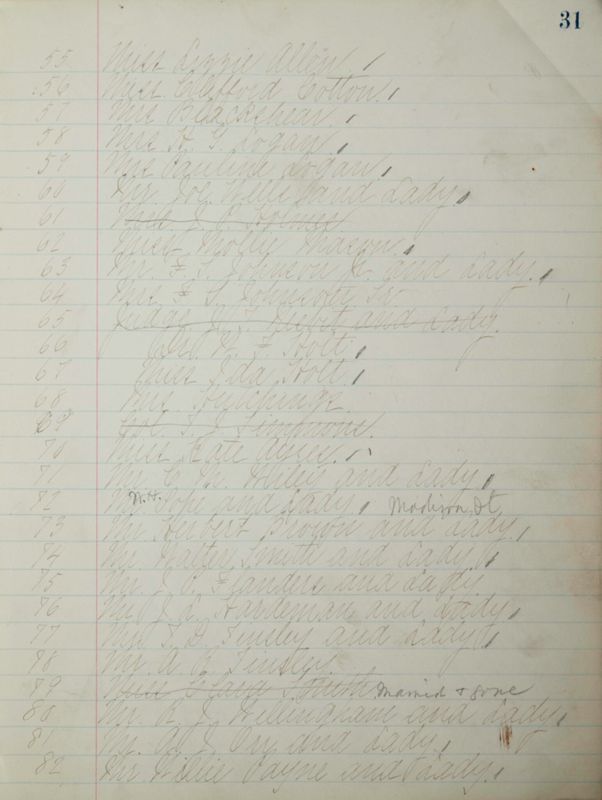 31
55 Miss Lizzie Allen
56 Miss Clifford Cotton
57 Mrs Blackshear
58 Mrs H. G. Logan
59 Mrs Pauline Logan
60 Mr. Joe Wells and Lady
61 Holmes
62 Miss Molly Mason
63 Mr. F. S. Johnson Jr. and Lady
64 Mrs F. S. Johnson Sr.
65 Judge and Lady
66 Holt
67 Miss Ida Holt
68 Mrs Hutchings
69 Col. T. J. Simmons
70 Miss Kate
71 Mr. and Lady
72 Mr. N.H. Pope and Lady Madison St
73 Mr Herbert Brown and Lady
74 Mr Walter Smith and Lady
75 Mr. J. C. Flanders and Lady
76 Mr. J. L. Hardeman and Lady
77 Mr. Tinsley and Lady
78 Mr A. R. Tinsley
79 Miss Smith Married & gone
80 Mr. R. J. Willingham and Lady
81 Mr. and Lady
82 Mr Willie Payne and Lady